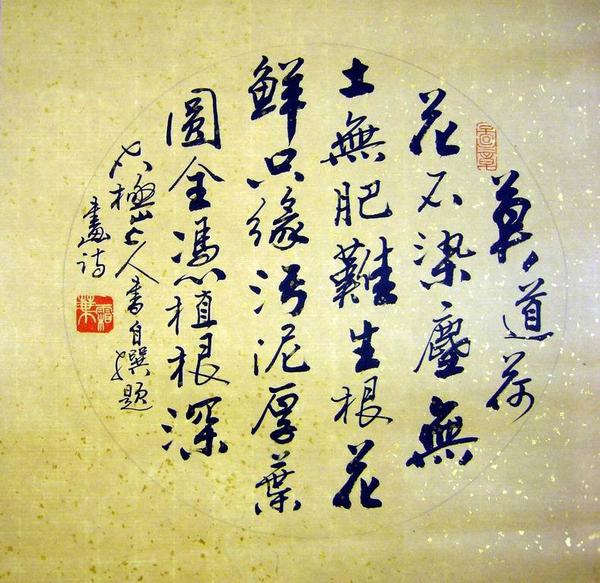 莫道荷
花不染塵無
土無肥難生根花
鮮只緣污泥厚葉
圓全馮植根深
極山上人書自撰題
畫詩
霜葉